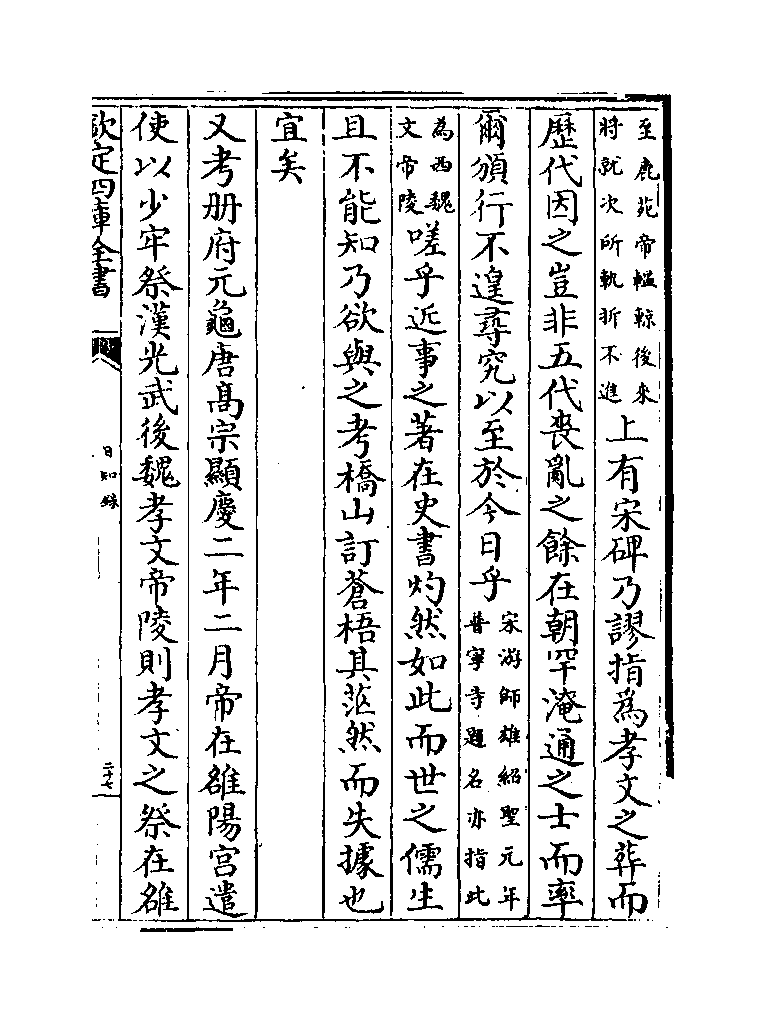 至鹿苑帝輼輬後來
將就次所軌折不進
上有宋碑乃謬指為孝文之葬而
歷代因之豈非五代喪亂之餘在朝罕淹通之士而率
爾頒行不遑尋究以至於今日乎
宋游師雄紹聖元年
普寧寺題名亦指此
為西魏
文帝陵
嗟乎近事之著在史書灼然如此而世之儒生
且不能知乃欲與之考橋山訂蒼梧其茫然而失據也
宜矣
又考册府元龜唐髙宗顯慶二年二月帝在雒陽宫遣
使以少牢祭漢光武後魏孝文帝陵則孝文之祭在雒
欽定四庫全書
日知錄
二十七